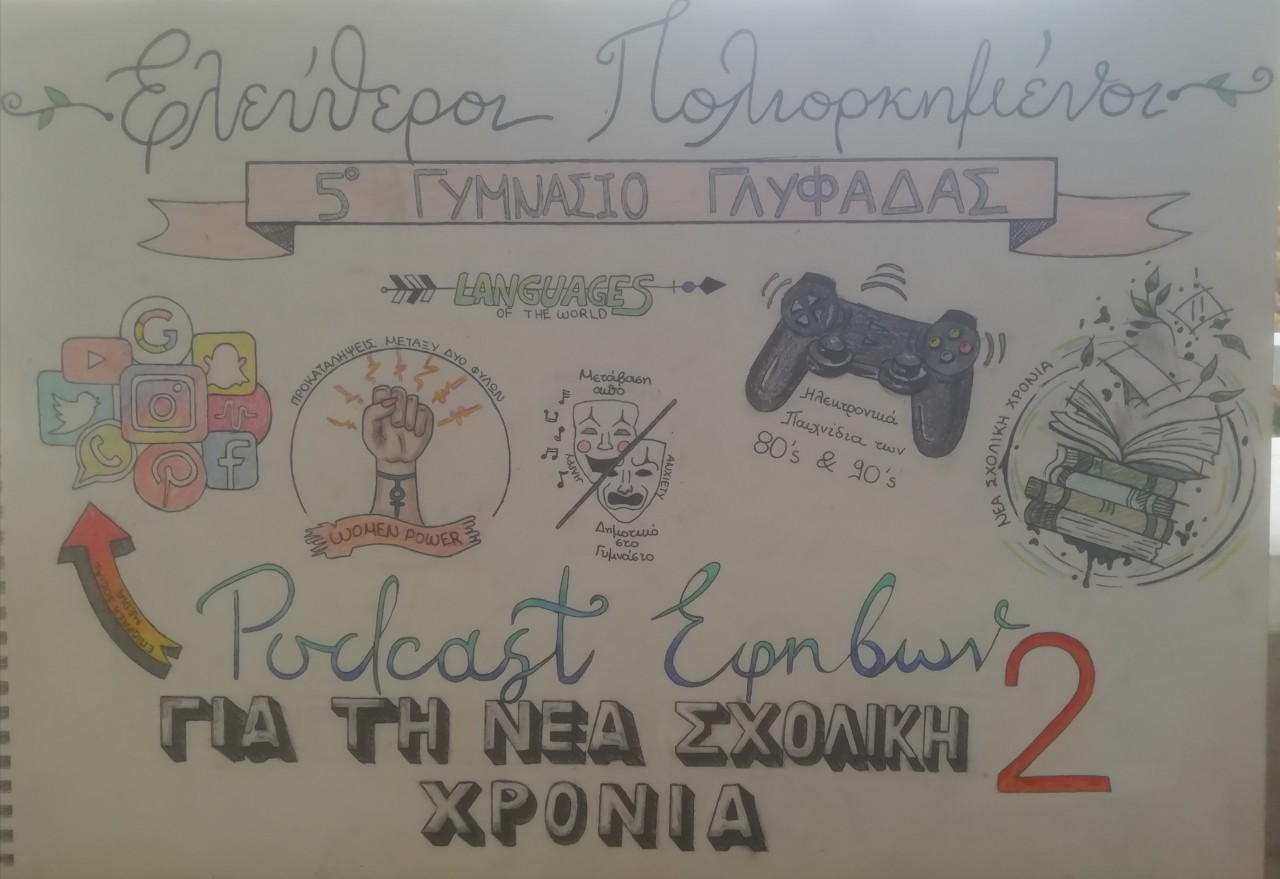 Ελεύθεροι Πολιορκημένοι
5° ΓΥΜΝΑΣΙΟ ΓΛΥΦΑΔΑΣ
LANGUAGES
OF THE WORLD
ΠΡΟΚΑΤΑΛΗΨΕΙΣ ΜΕΤΑΞΥ ΔΥΟ ΦΥΛΩΝ
WOMEN POWER
Μετάβαση
από
HAPPY
ANXIETY
Δημοτικό
στο
Γυμνάσιο
Ηλεκτρονικά
Παιχνίδια των
80's & 90's
ΝΕΑ ΣΧΟΛΙΚΗ ΧΡΟΝΙΑ
SOCIAL
MEDIA
Podcast Εφήβων 2
ΓΙΑ ΤΗ ΝΕΑ ΣΧΟΛΙΚΗ
ΧΡΟΝΙΑ